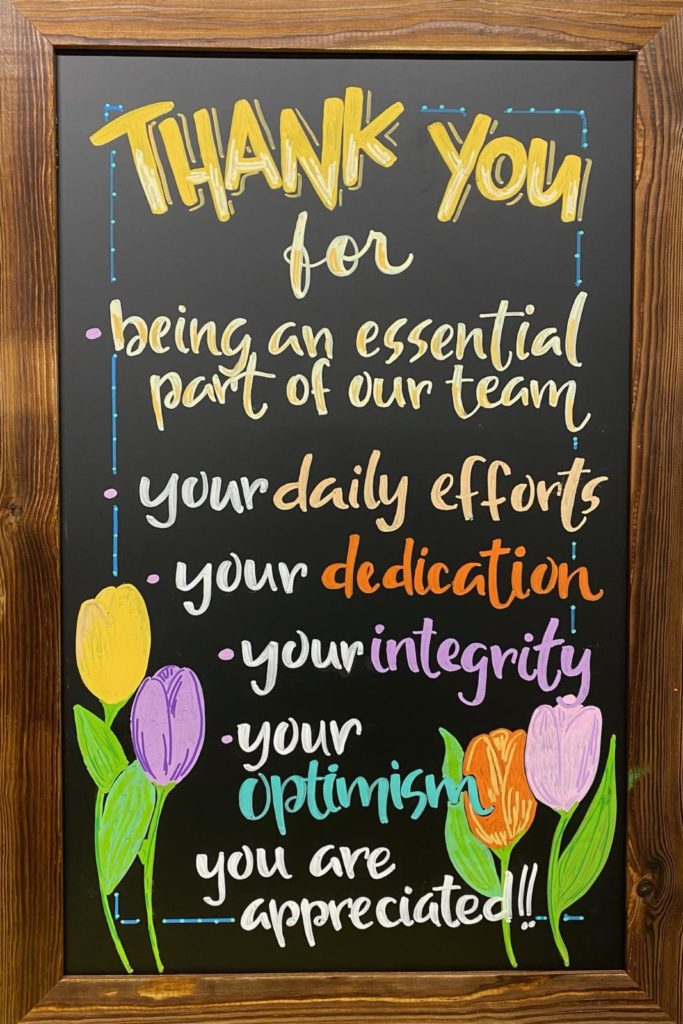 THANK YOU
for
• being an essential
part of our team
• your daily efforts
• your dedication
• your integrity
• your
optimism
you are
appreciated!!